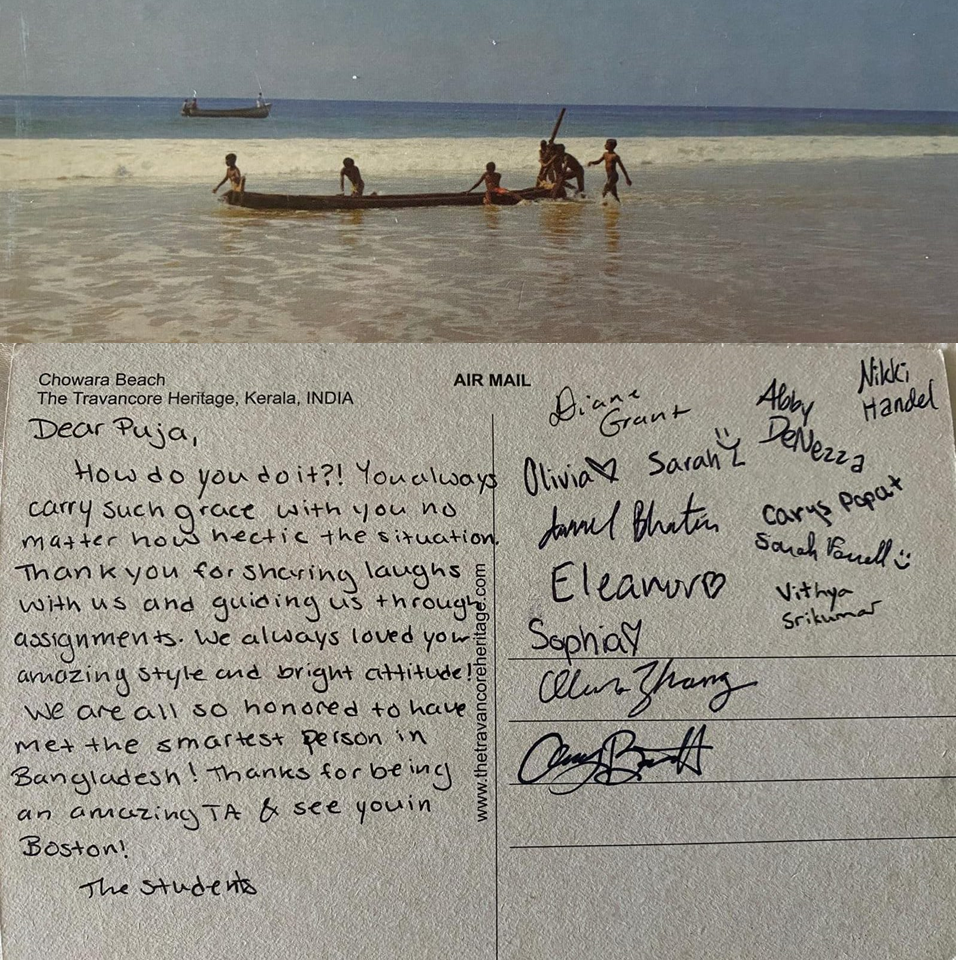 Chowara Beach
The Travancore Heritage, Kerala, INDIA
AIR MAIL
Dear Puja,
How do you do it?! You always
carry such grace with you no
matter how hectic the situation.
Thank you for sharing laughs
with us and guiding us through
assignments. We always loved your
amazing style and bright attitude!
We are all so honored to have
met the smartest person in
Bangladesh! Thanks for being
an amazing TA & see you in
Boston!
The students
www.thetravancoreheritage.com
Diane
Grant
Abby
DeNezza
Nikki
Handel
Olivia♡
Sarah Z
Carys Popat
Sarah
Eleanor♡
Vithya
Srikumar
Sophia♡
Zhang